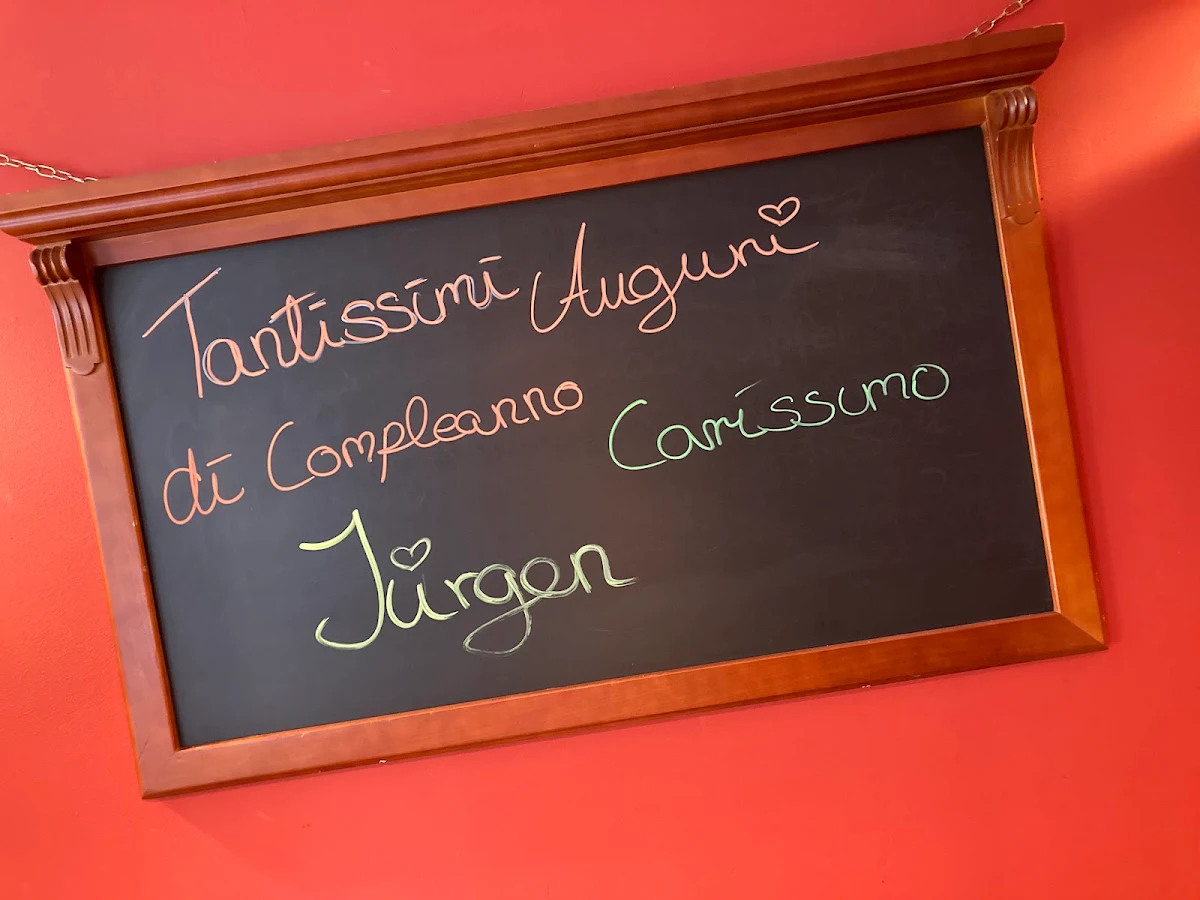 Tantissimi Auguri
di Compleanno Carissimo
Jürgen